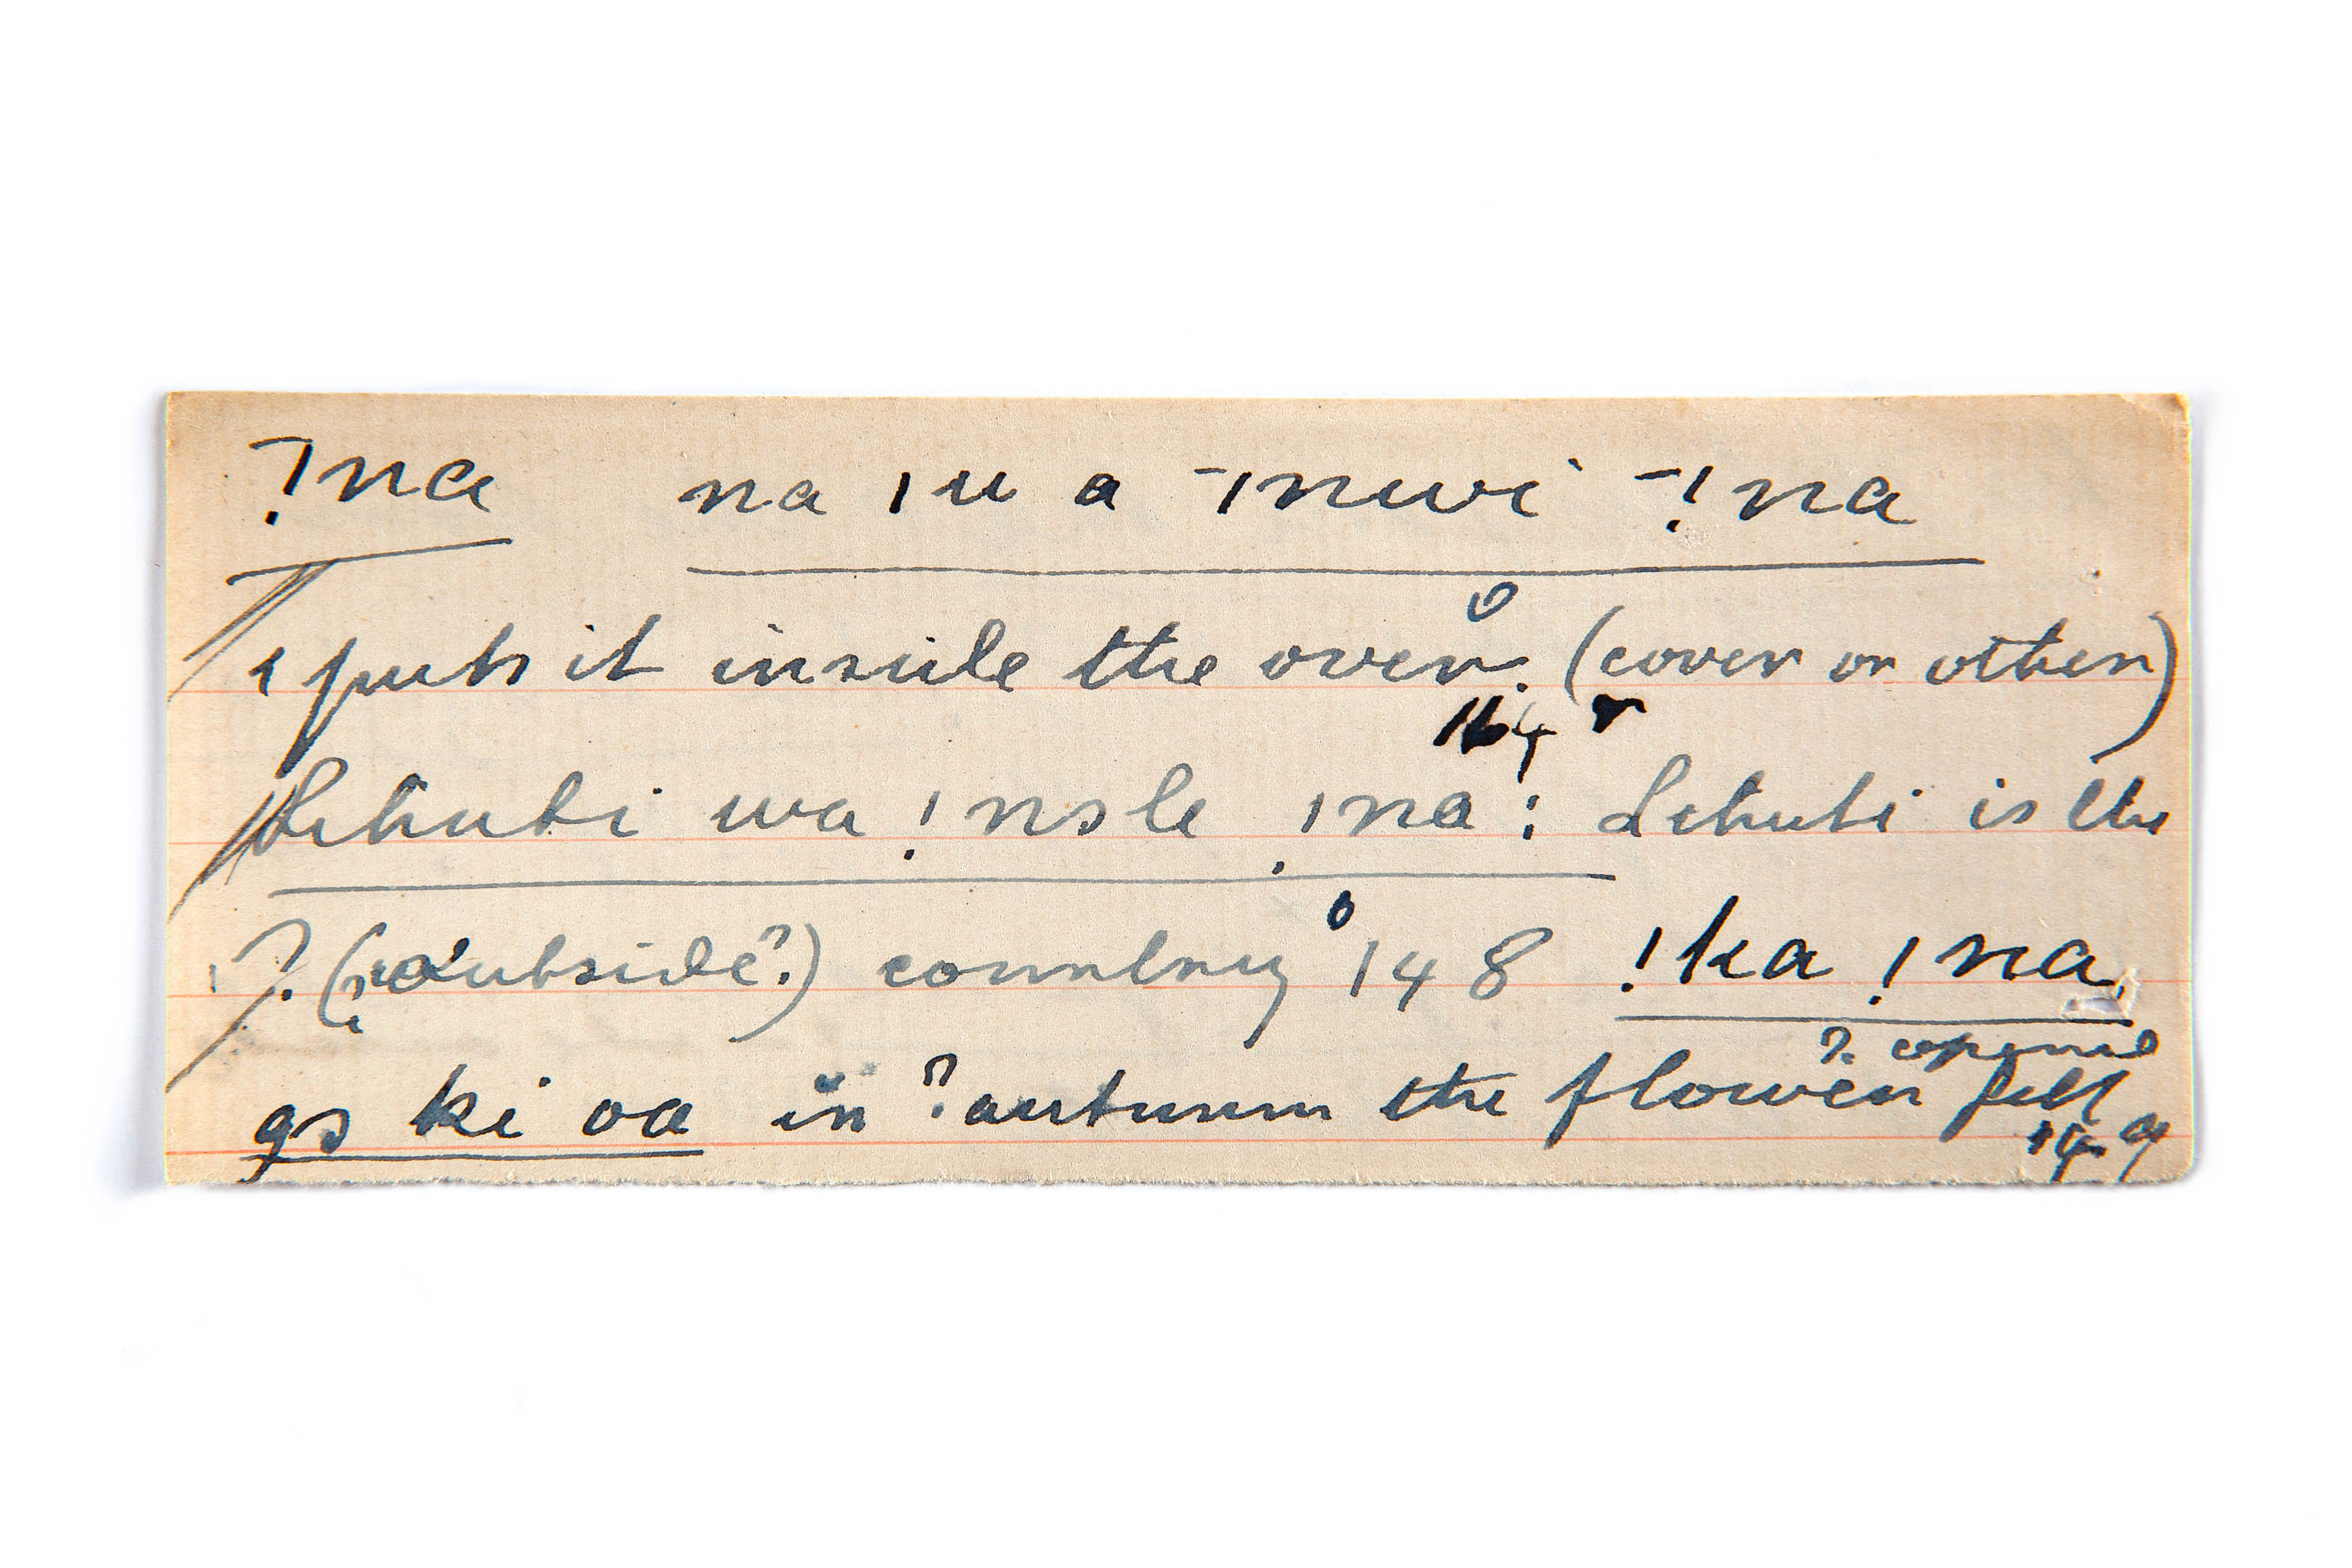 ǃna na ǀu a ˉǀnwi ˉǃna
puts it inside the oven. (cover or other)
Sehubi wa ǃnsle ǃna : Sehubi is the
? (outside?) country 148 ǃka ǃna
? opened
gs ki oa in ? autumn the flower fell
149